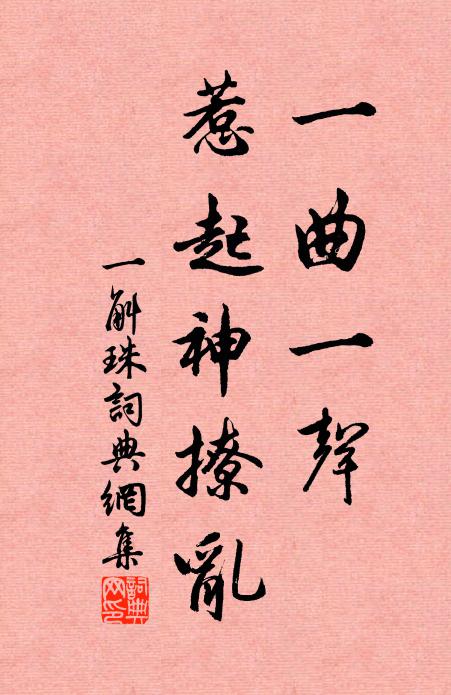 一曲一聲
惹起神撩亂
一斛珠詞典網集
詞典网印